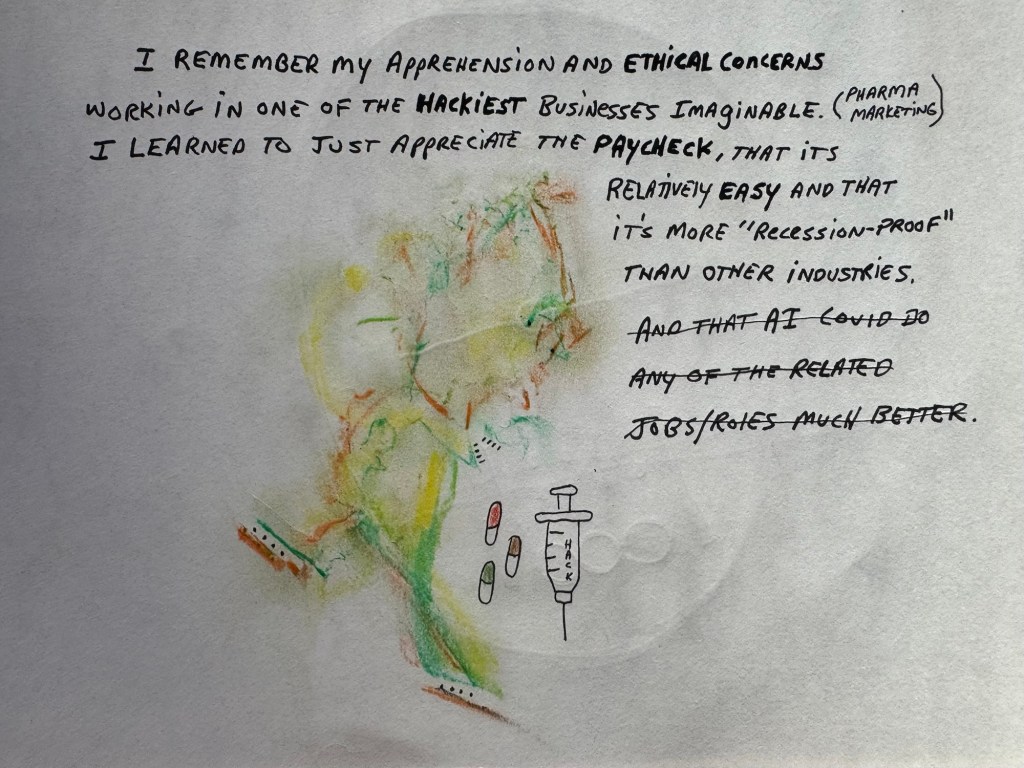 I REMEMBER MY APPREHENSION AND ETHICAL CONCERNS
WORKING IN ONE OF THE HACKIEST BUSINESSES IMAGINABLE. (PHARMA MARKETING)
I LEARNED TO JUST APPRECIATE THE PAYCHECK, THAT ITS
RELATIVELY EASY AND THAT
IT'S MORE "RECESSION-PROOF"
THAN OTHER INDUSTRIES.
AND THAT AI COULD DO
ANY OF THE RELATED
JOBS/ROLES MUCH BETTER.
HACK